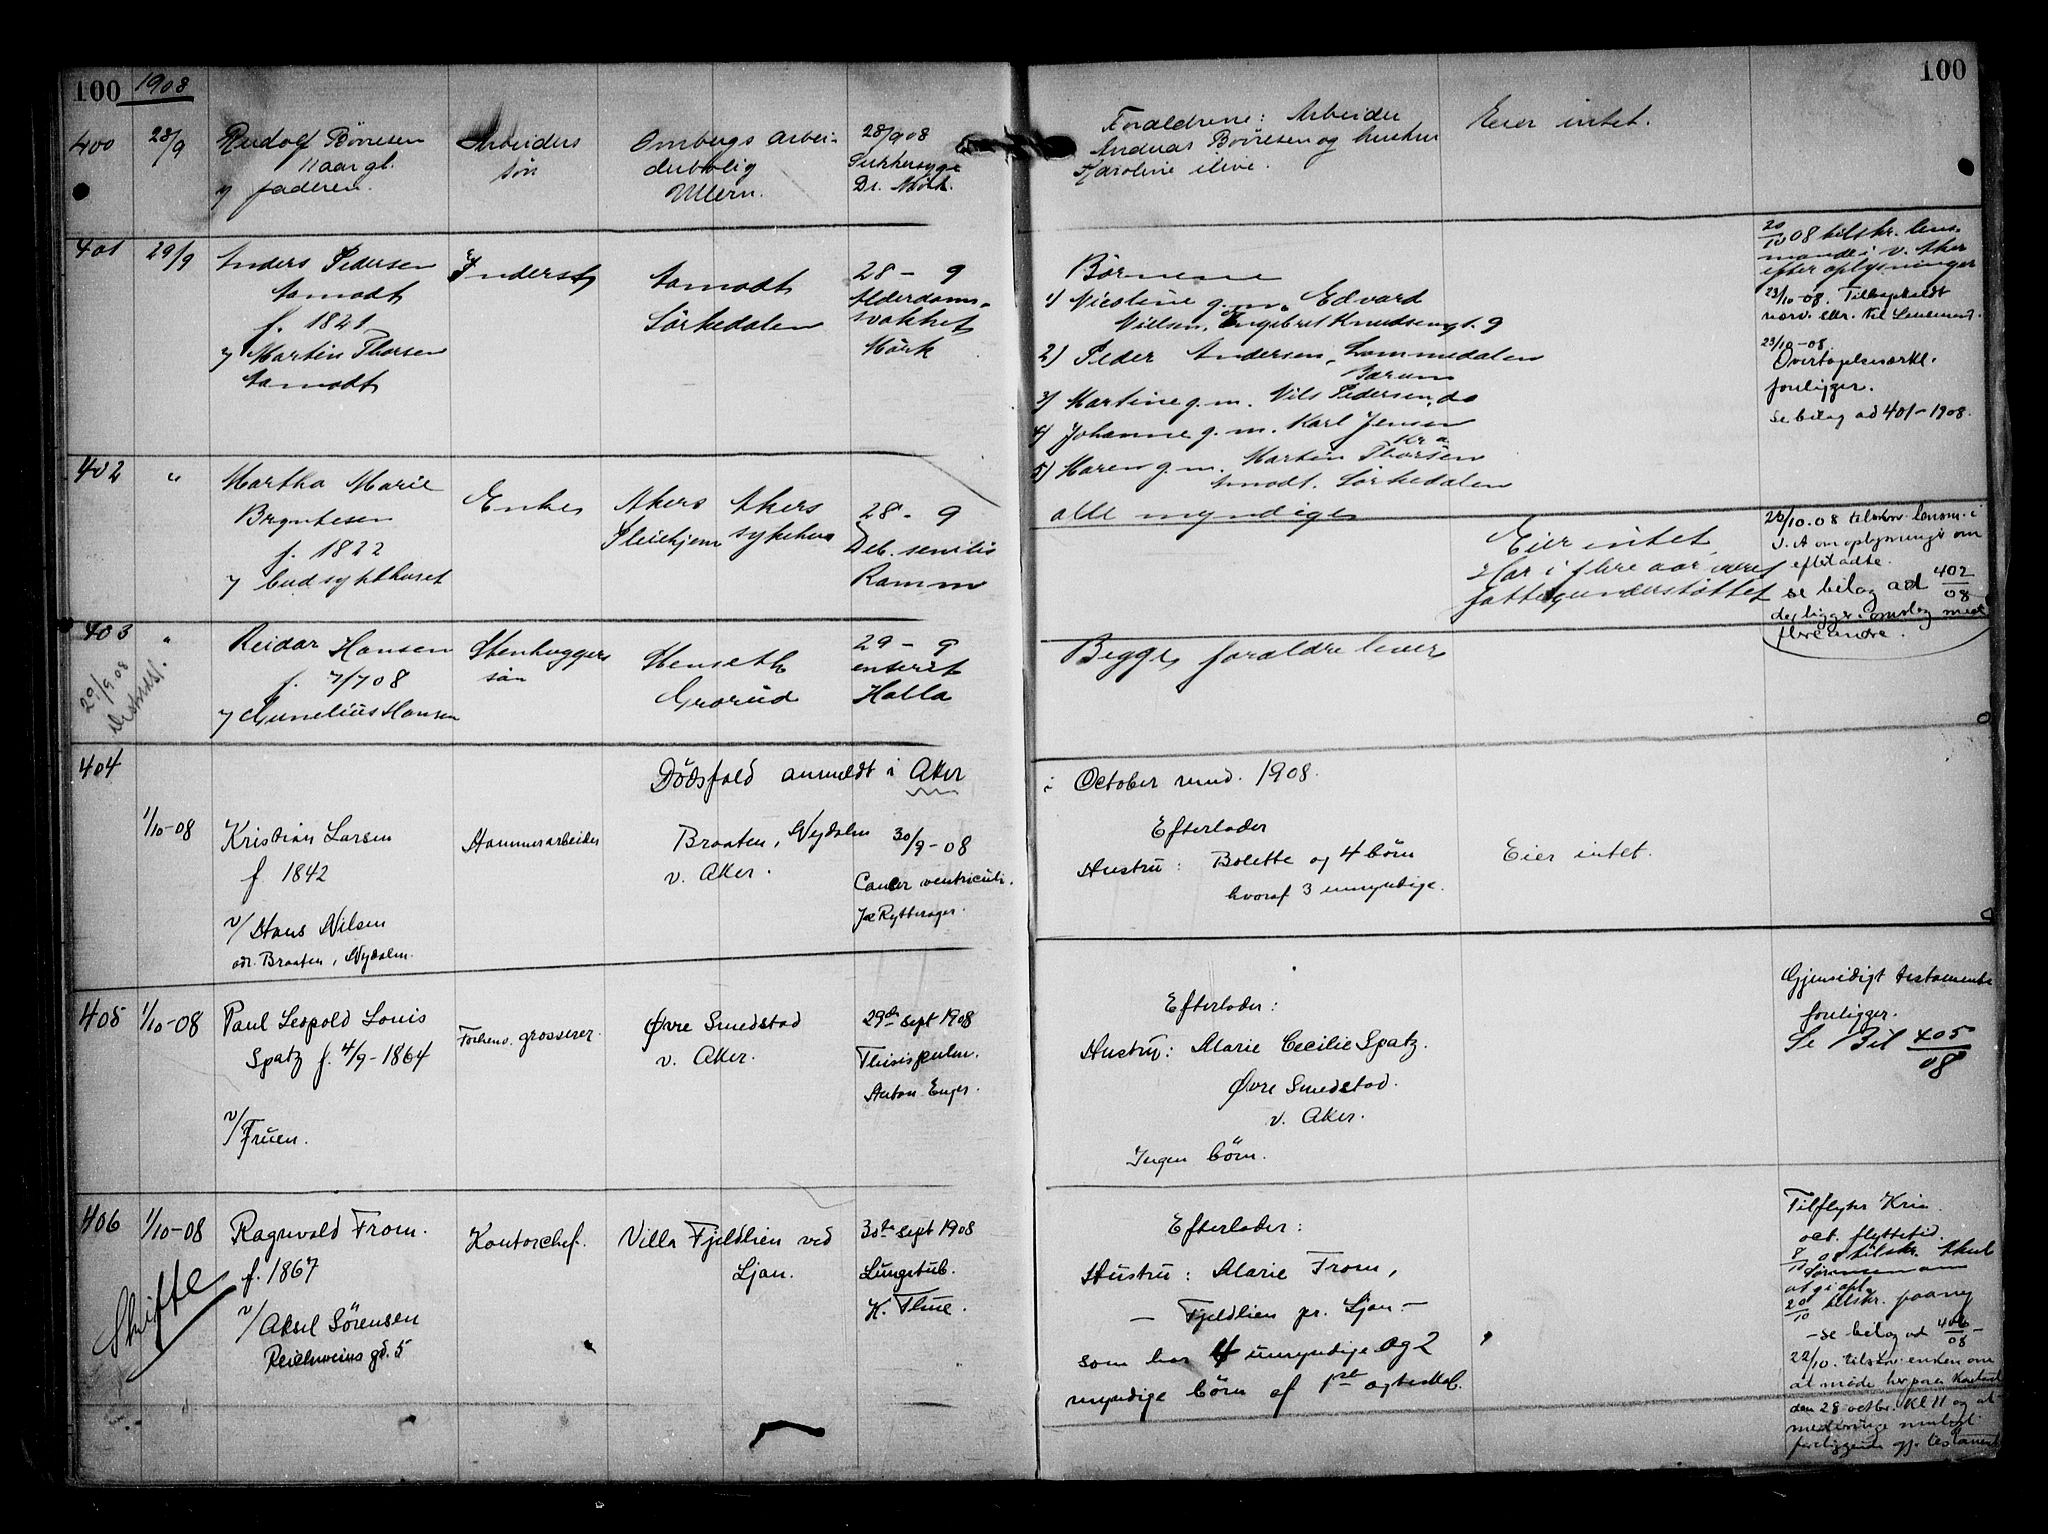 100 1908
100
400 28/9 Rudolf Börresen
11 aar gl.
v/ faderen.
Arbeiders
søn
Ombergs arbei-
derbolig
Ullern.
28/9 08
Sukkersyge
Dr. Mörk.
Forældrene: Arbeider
Andreas Börresen og hustru
Karoline ilive.
Eier intet.
401 29/9 Anders Pedersen
Aamodt
f. 1821
v/ Martin Thorsen
Aamodt
Inderst
Aamodt
Sørkedalen
28 - 9
Alderdoms-
svakhet
Mörk
Børnene
1) Nicoline g.m. Edvard
Nielsen, Engebret Knudseng. 9
2) Peder Andersen, Lommedalen
Bærum
3) Martine g.m. Nils Pedersen, do
4) Johanne g.m. Karl Jensen
Kr a
5) Maren g.m. Martin Thorsen
Amodt. Sørkedalen
alle myndige
20/10 08 tilskr. lens-
mand i v. Aker
efter oplysninger
23/10-08. Tilbakeholdt
nærv. skr. til Lensmand.
23/10-08.
Overtagelseserkl.
foreligger.
Se bilag ad 401-1908.
402 " Martha Marie
Bryntesen
f. 1822
v/ bud sykehuset
Enke
Akers
Pleiehjem
Akers
sykehus
28 - 9
Deb. senilis
Ramm
Eier intet
Har i flere aar været
fattigunderstøttet
20/10-08 tilskr. lensm. i
v. A om oplysninger om
efterladte.
se bilag ad 402/08
der ligger i omslag med
flere andre.
403 " Reidar Hansen
f. 7/7 08
v/ Gunelius Hansen
29/9 08
Stenhuggers
søn
Stenseth
Grorud
29 - 9
enterit
Holla
Begge forældre lever
404
Dödsfald anmeldt i Aker
i October mnd. 1908.
1/10-08 Kristian Larsen
f 1842
v/ Hans Nilsen
adr. Braaten, Nydalen.
Hammerarbeider
Braaten, Nydalen
v. Aker.
30/9-08
Cancer ventriculi.
J. Rytterager.
Efterlader
Hustru: Bolette og 4 börn
hvoraf 3 umyndige.
Eier intet.
405 1/10-08 Paul Leopold Louis
Spatz f. 4/9-1864
v/ Fruen.
Forhenv. grosserer.
Øvre Smedstad
v. Aker.
29de sept 1908
Thisis pulm.
Anton Enger.
Efterlader:
Hustru: Marie Cecilie Spatz.
Øvre Smedstad.
v. Aker.
Ingen börn.
Gjensidigt testamente
foreligger.
Se Bil 405/08
406 1/10-08 Ragnvald From.
f. 1867
v/ Aksel Sörensen
Reichweins gd. 5
Skifte
Kontorchef.
Villa Fjeldlien ved
Ljan.
30te sept 1908
Lungetub.
K. Thue.
Efterlader:
Hustru: Marie From,
— Fjeldlien pr. Ljan —
som har 4 umyndige og 2
myndige börn af 1ste ægteskab.
Tilflytter Kria
oct. flyttetid.
8/10 08 tilskr. Aksel
Sørensen om
at gi opl.
20/10 tilskr. paany
- se bilag ad 406/08 -
22/10. tilskr. enken om
at møde her paa Kontoret
den 28 octbr. Kl 11 og at
medbringe mulig
foreliggende gj. testament